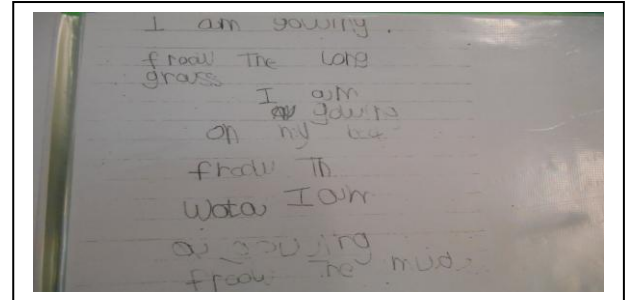 I am gowing.
froou The Long
grass
I am
gowing
on my
froou Th
Wata I am
gouing
froou The mud.